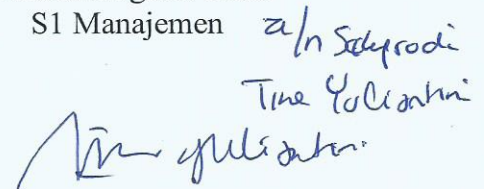 S1 Manajemen
a/n Sekprodi
Tine Yuliantini
Tine Yuliantini